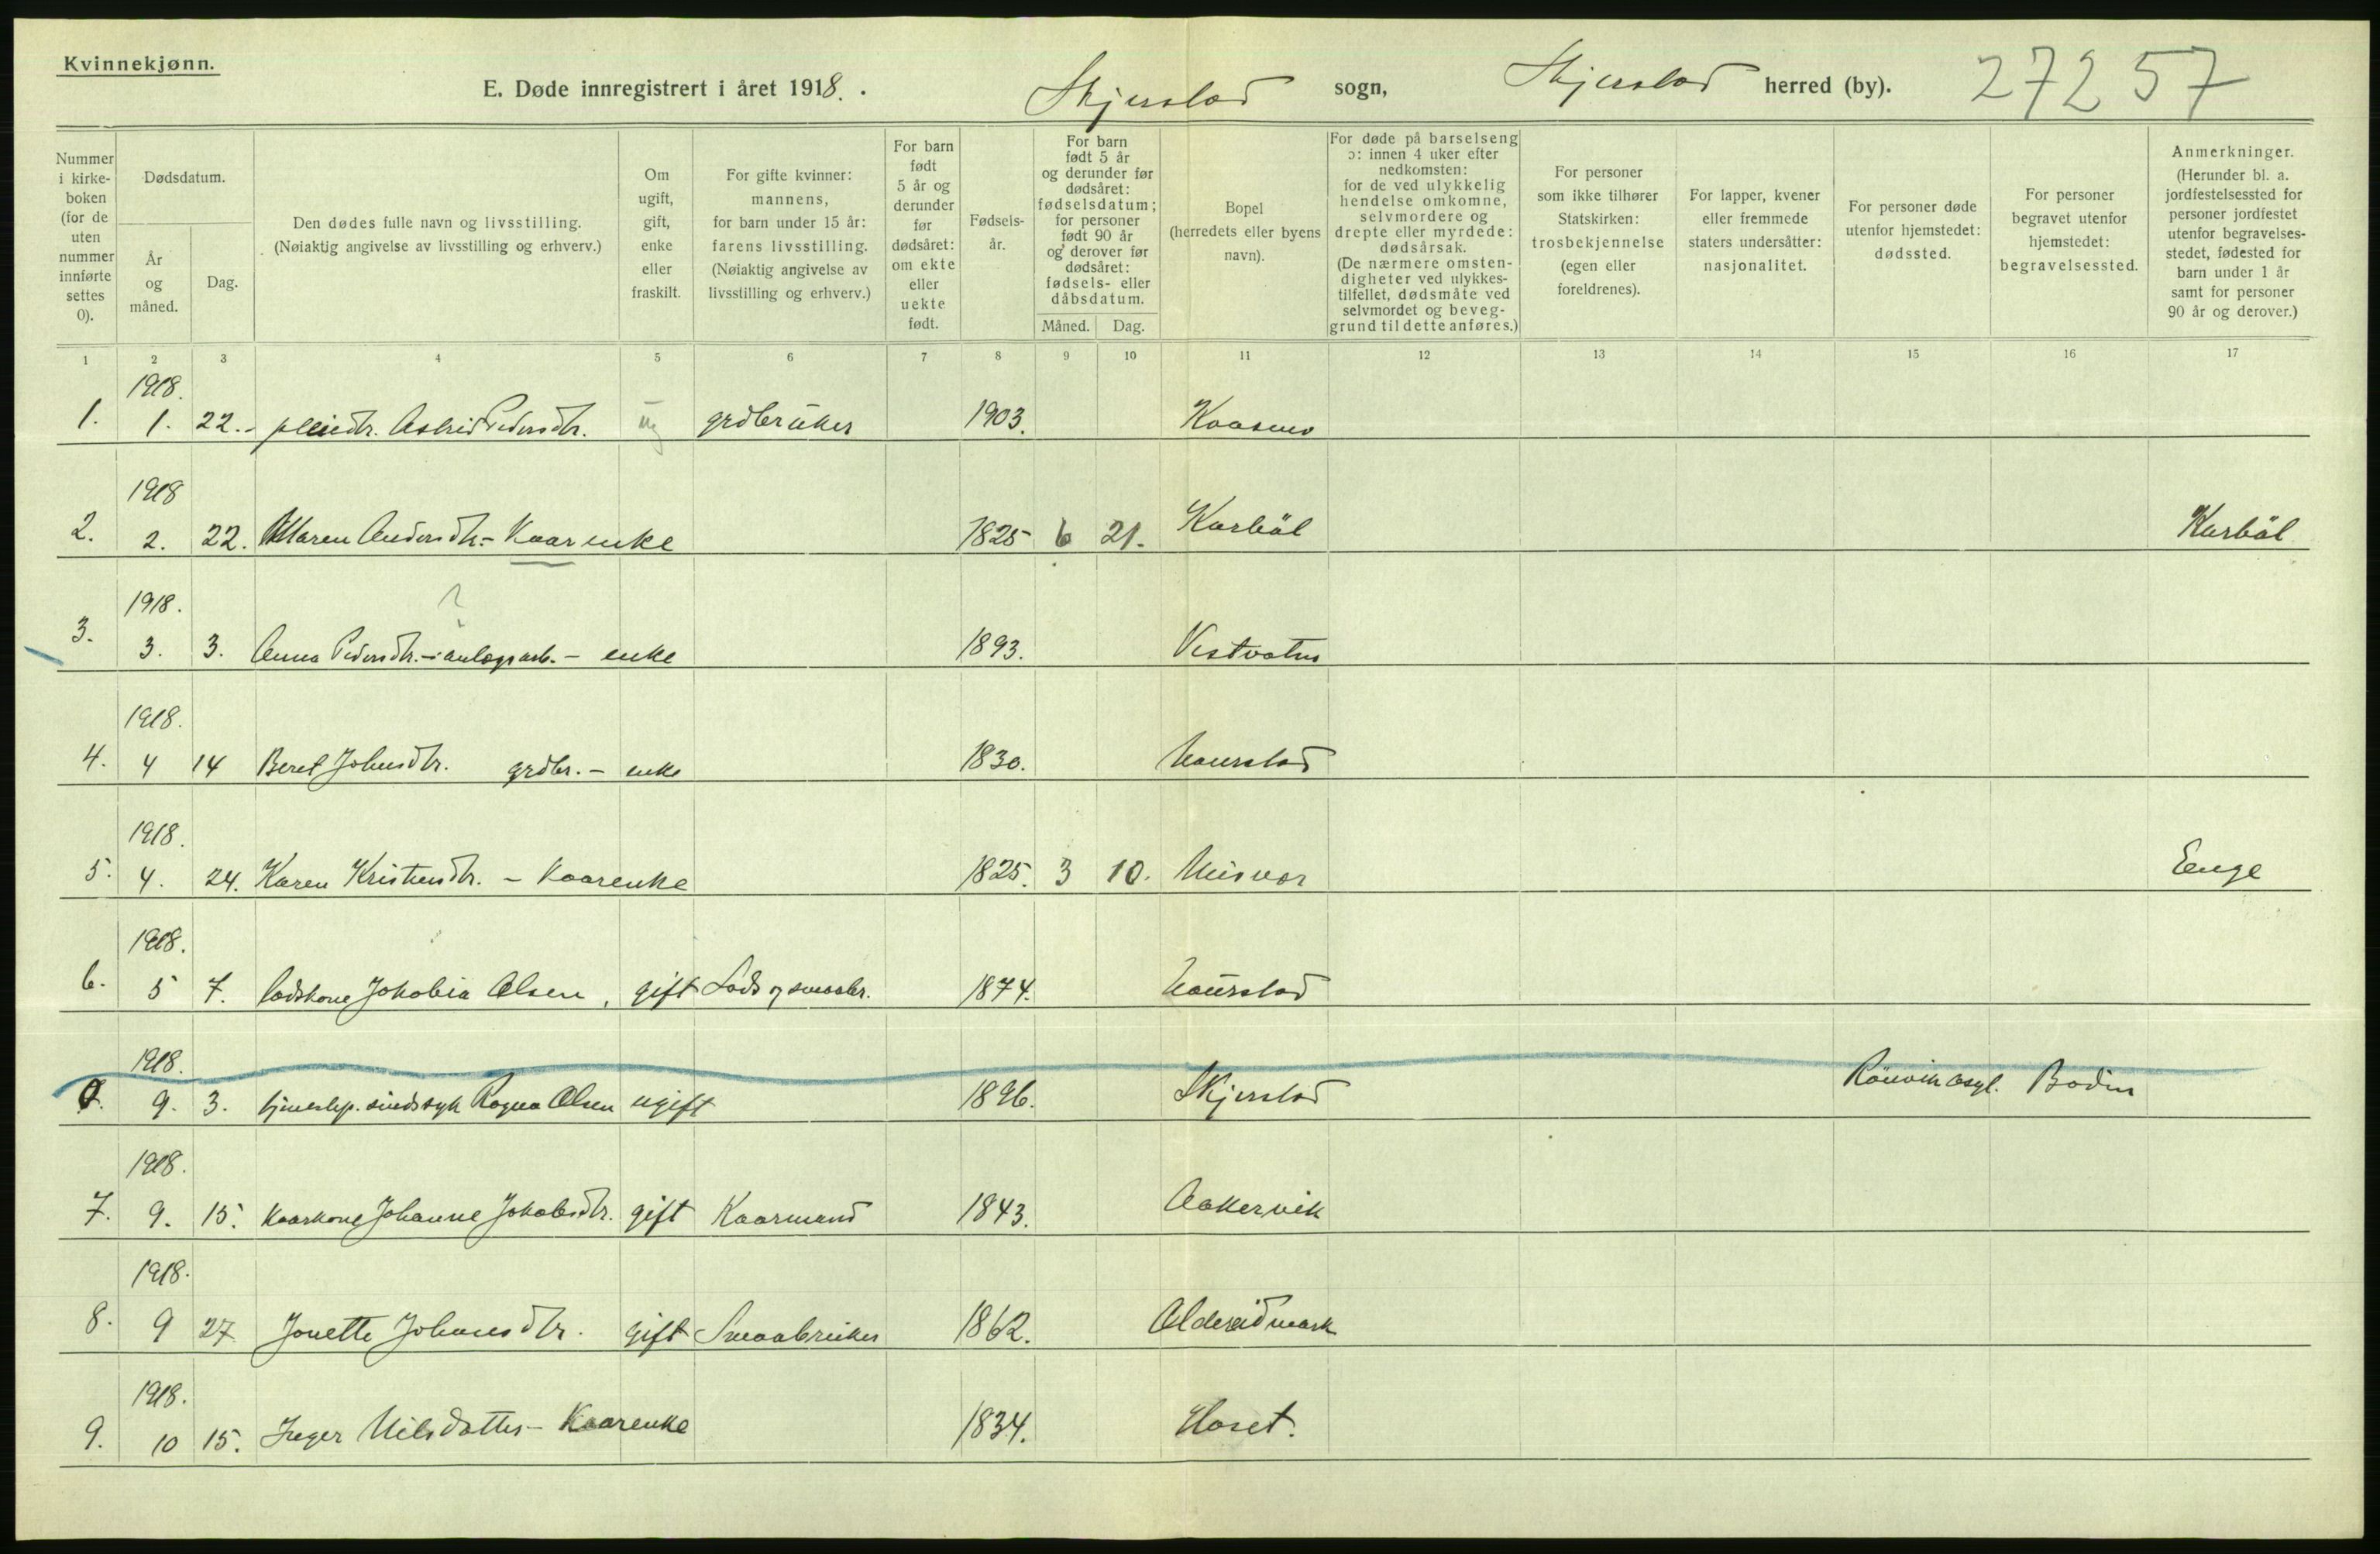 Kvinnekjønn.
E. Døde innregistrert i året 1918. . Skjerstad sogn, Skjerstad herred (by). 27257
Nummer i kirke- boken (for de uten nummer innførte settes 0).
Dødsdatum.
År og måned.
Dag.
Den dødes fulle navn og livsstilling.
(Nøiaktig angivelse av livsstilling og erhverv.)
Om ugift, gift, enke eller fraskilt.
For gifte kvinner: mannens, for barn under 15 år: farens livsstilling. (Nøiaktig angivelse av livsstilling og erhverv.)
For barn født 5 år og derunder før dødsåret: om ekte eller uekte født.
Fødsels- år.
For barn født 5 år og derunder før dødsåret: fødselsdatum; for personer født 90 år og derover før dødsåret: fødsels- eller dåbsdatum.
Måned. Dag.
Bopel (herredets eller byens navn).
For døde på barselseng ɔ: innen 4 uker efter nedkomsten: for de ved ulykkelig hendelse omkomne, selvmordere og drepte eller myrdede: dødsårsak. (De nærmere omsten- digheter ved ulykkes- tilfellet, dødsmåte ved selvmordet og beveg- grund til dette anføres.)
For personer som ikke tilhører Statskirken: trosbekjennelse (egen eller foreldrenes).
For lapper, kvener eller fremmede staters undersåtter: nasjonalitet.
For personer døde utenfor hjemstedet: dødssted.
For personer begravet utenfor hjemstedet: begravelsessted.
Anmerkninger. (Herunder bl. a. jordfestelsessted for personer jordfestet utenfor begravelses- stedet, fødested for barn under 1 år samt for personer 90 år og derover.)
1 2 3 4 5 6 7 8 9 10 11 12 13 14 15 16 17
1918.
1. 1. 22. pleiedtr. Astrid Pedersdtr. ug grdbruker 1903. Kaasmo
1918
2. 2. 22. Maren Andersdtr. - Kaarenke 1825 6 21. Karbøl Karbøl
?
1918.
3. 3. 3. Anna Pedersdtr. - anlægsarb. - enke 1893. Vestvatn
1918.
4. 4 14 Beret Johnsdtr. grdbr. - enke 1830. Naurstad
1918.
5. 4. 24. Karen Kristensdtr. - Kaarenke 1825. 3 10. Misvær Enge
1918.
6. 5 7. Lodskone Jakobia Olsen, gift Lods og smaabr. 1874. Naurstad
1918.
0. 9. 3. hjemshp. sindssyk Ragna Olsen ugift 1896. Skjerstad Rønvik asyl. Bodin
1918.
7. 9. 15. Kaarkone Johanne Jakobsdtr. gift Kaarmand 1843. Aakervik
1918.
8. 9 27 Jonette Johansdtr. gift Smaabruker 1862. Oldereidmark
1918.
9. 10 15. Inger Nilsdatter - Kaarenke 1834. Hoset.